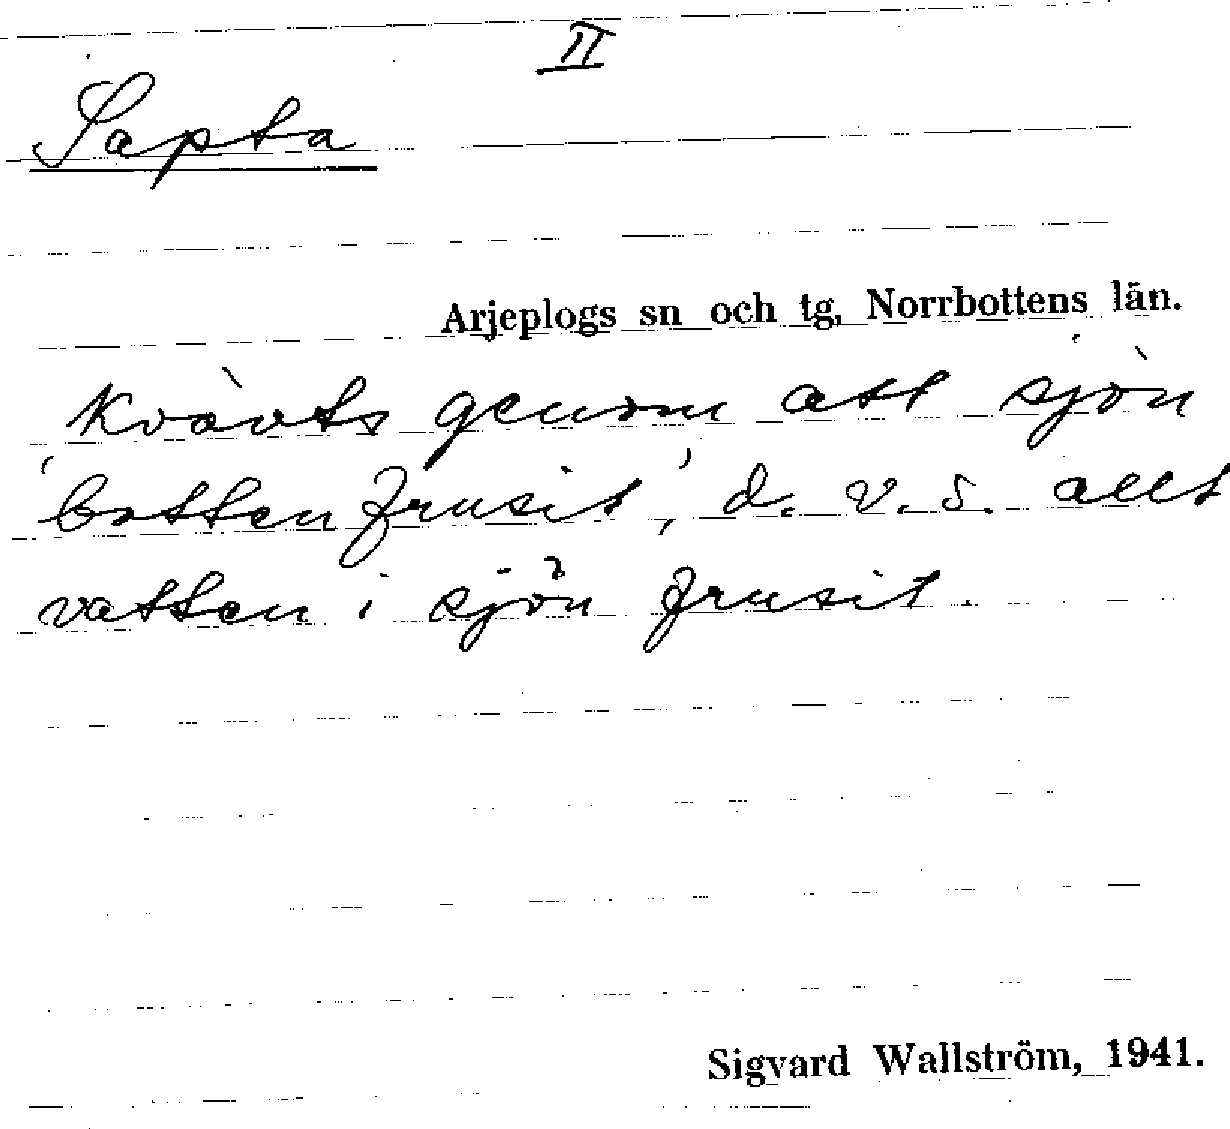 II
Sapta
Arjeplogs sn och tg, Norrbottens län.
kvävts genom att sjön
'bottenfrusit', d. v. s. allt
vatten i sjön frusit.
Sigvard Wallström, 1941.